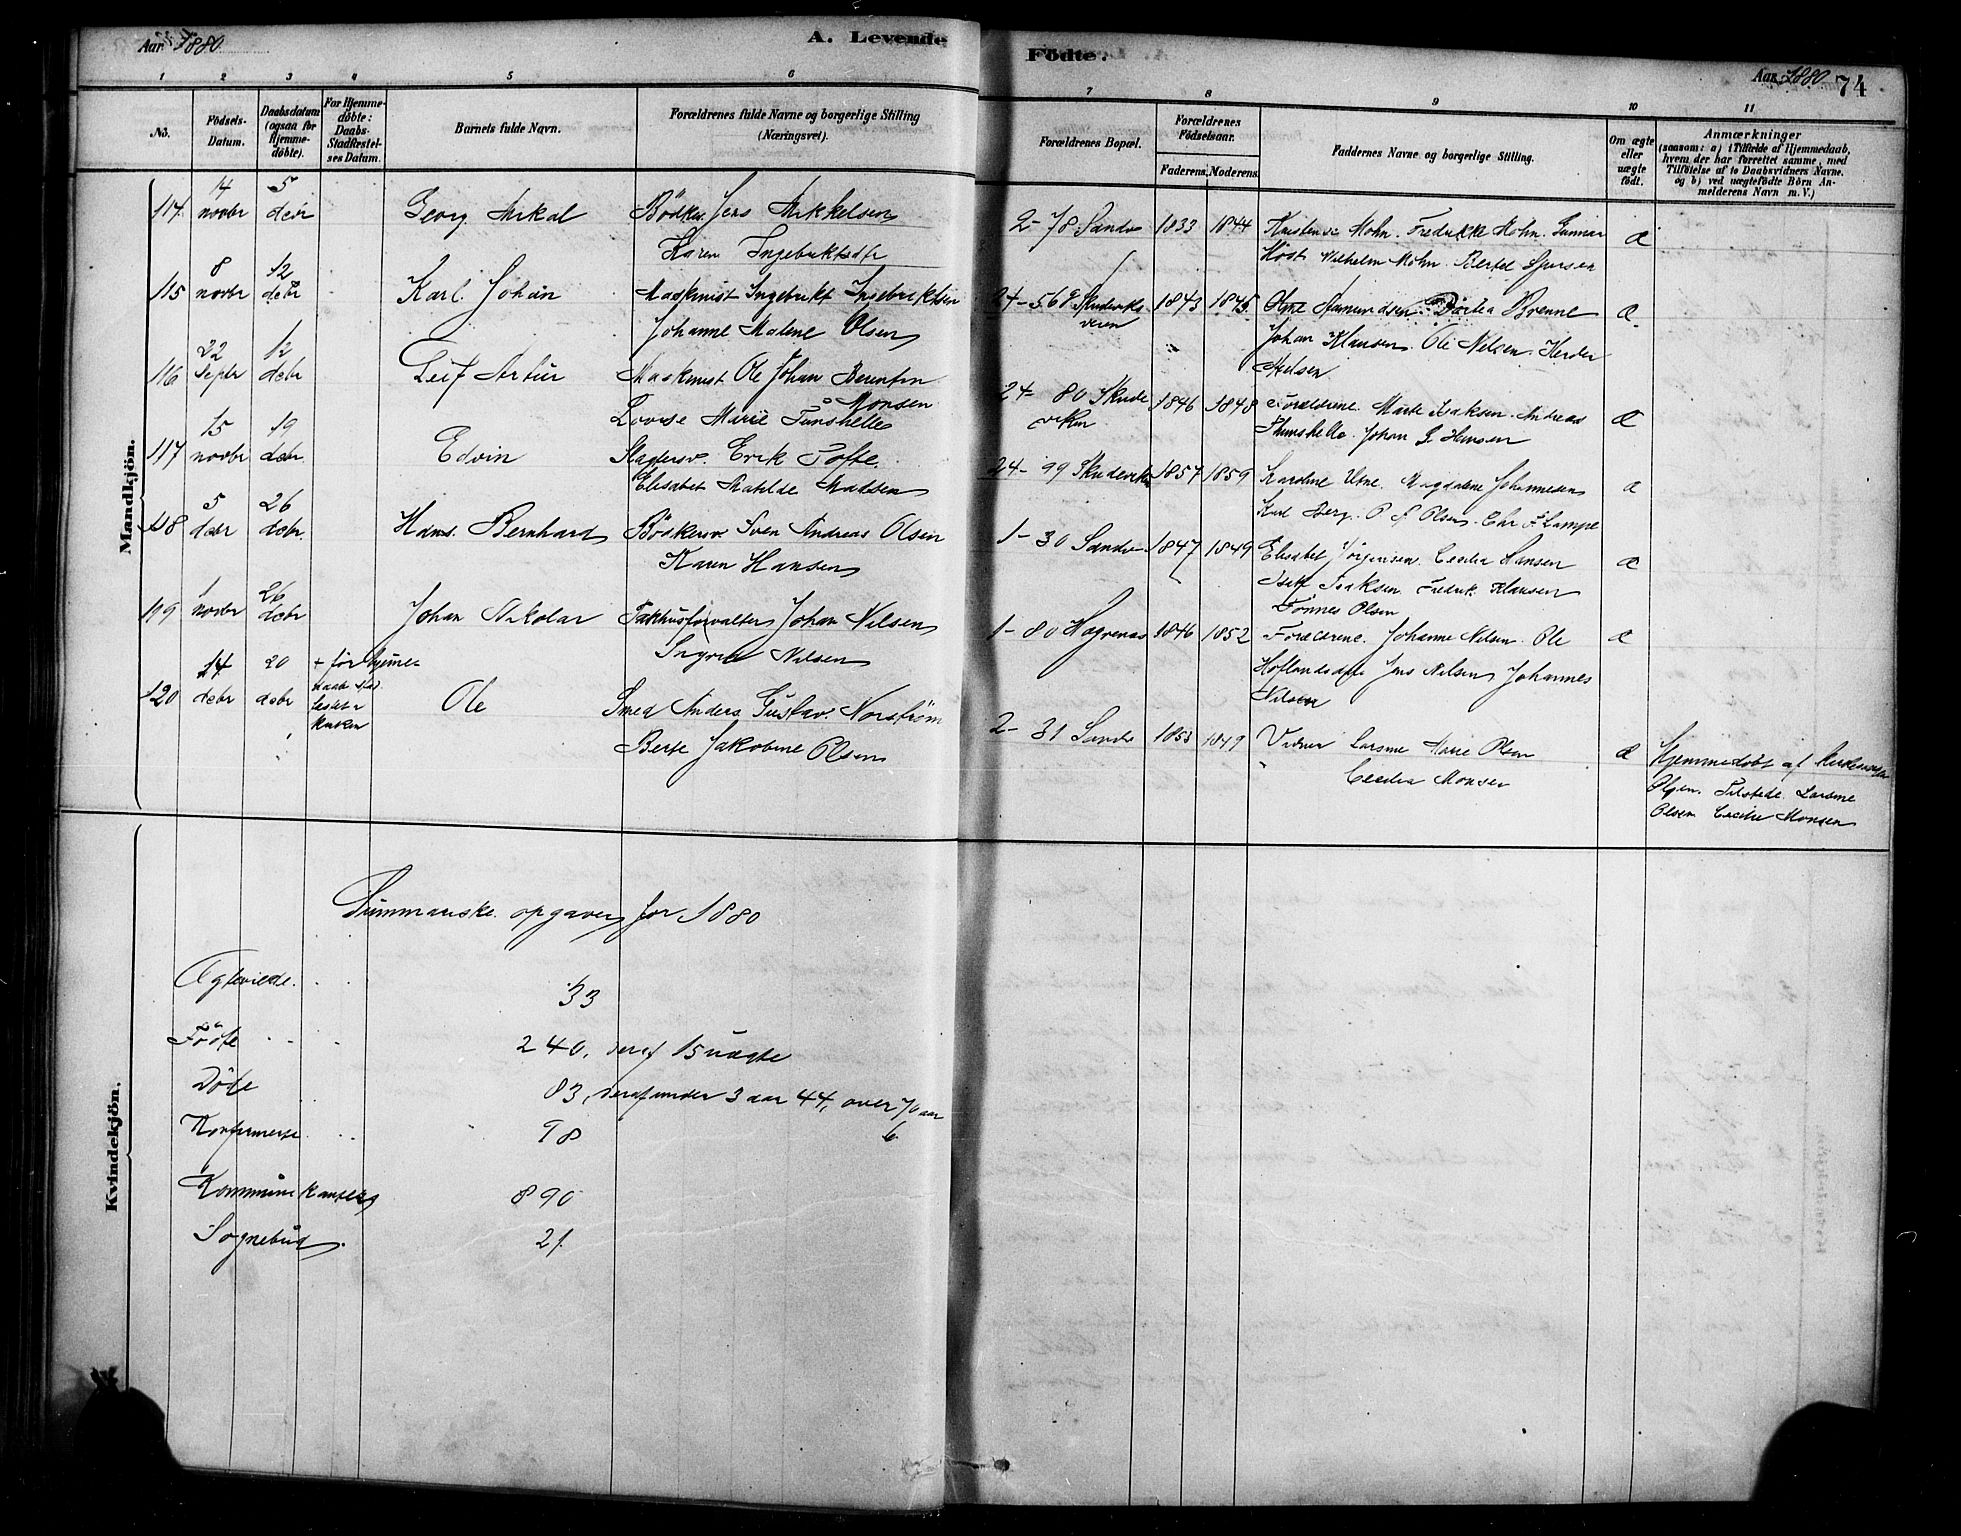 Aar 1880
A. Levende
Fødte.
Aar 1880
74
1 2 3 4 5 6 7 8 9 10 11
No.
Födsels-Datum.
Daabsdatum (ogsaa for Hjemme-döbte).
For Hjemme-döbte: Daabs-Stadfæstel-ses Datum.
Barnets fulde Navn.
Forældrenes fulde Navne og borgerlige Stilling (Næringsvei).
Forældrenes Bopæl.
Forældrenes Födselsaar.
Faderens. Moderens.
Faddernes Navne og borgerlige Stilling.
Om ægte eller uægte födt.
Anmærkninger
(saasom: a) i Tilfælde af Hjemmedaab, hvem der har forrettet samme, med Tilföielse af to Daabsvidners Navne, og b) ved uægtefödte Börn An-melderens Navn m. V.)
Mandkjön.
114 14 novbr 5 debr Georg Mikal Bödker Jens Mikkelsen
Karen Ingebriktsdtr
2-78 Sandv 1833 1844 Mohn. Fredrikke Mohn. Gunnar
Høst Vilhelm Mohn. Bertel Sjursen
æ
115 8 novbr 12 debr Karl Johan Maskinist Ingebrikt Ingebriktsen
Johanne Malene Olsen
24-568 Skudeviks
veien
1843 1845 Amundsen Dortea Brenne
Johan Klausen. Ole Nilsen.
Nilsen
æ
116 22 Septr 12 debr Leif Artur Maskinist Ole Johan Berentsen
Monsen
Lovise Marie Tunshelle
24-80 Skude
viken
1846 1848 Forældrene. Marte Isaksen. Andreas
Johan G. Hansen
æ
117 15 novbr 19 debr Edvin Slagtersv. Erik Tofte.
Elisabet Matilde Madsen
24-99 Skudeviken 1857 1859 Karoline Utne. Magdalene Johannesen
Karl Berg. P. A Olsen. Chr F. Lampe
æ
118 5 debr 26 debr. Hans Bernhard Bödkersv Sven Andreas Olsen
Karen Hansen
1-30 Sandv 1847 1849 Elisabet Jörgensen. Cecilia Hansen
Isak Isaksen Fredrik Klausen
Tönnes Olsen
æ
119 1 novbr 26 debr Johan Nikolai Pakhusforvalter Johan Nilsen
Ingrid Nilsen
1-80 Hægrenæs 1846 1852 Forældrene. Johanne Nilsen. Ole
Jens Nilsen Johannes
Nilsen
æ
120 14 debr 20 debr + før hjemme
daab stad
festet i
kirken
Ole Smed Anders Gustav Norström
Berte Jakobine Olsen
2-31 Sandv 1853 1849 Vidner Larsine Marie Olsen
" Cecilia Monsen
æ
Hjemmedöbt af
Olsen. Tilstede Larsine
Olsen Cecilie Monsen
Kvindekjön.
Summariske opgaver for 1880
Ægteviede. 33
Födte 240, deraf 15 uægte
Döde 83, deraf under 3 aar 44, over 70 aar
6
Konfirmerte 98
Kommunikanter 890
Sognebud 21.